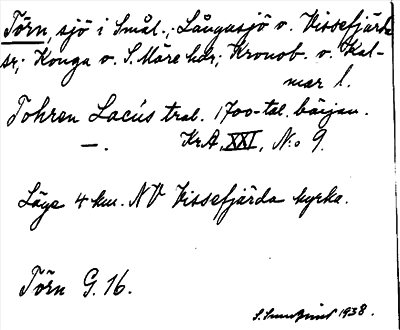 Törn, sjö i Smål.; Långasjö o. Vissefjärda
sr; Konga o. S. Möre hdr; Kronob. o. Kal-
mar l.
Tohren Lacus tral. 1700-tal. början.
—. KrA, XXI, N:o 9.
Läge 4 km. NV Vissefjärda kyrka.
Törn G. 16.
1938.